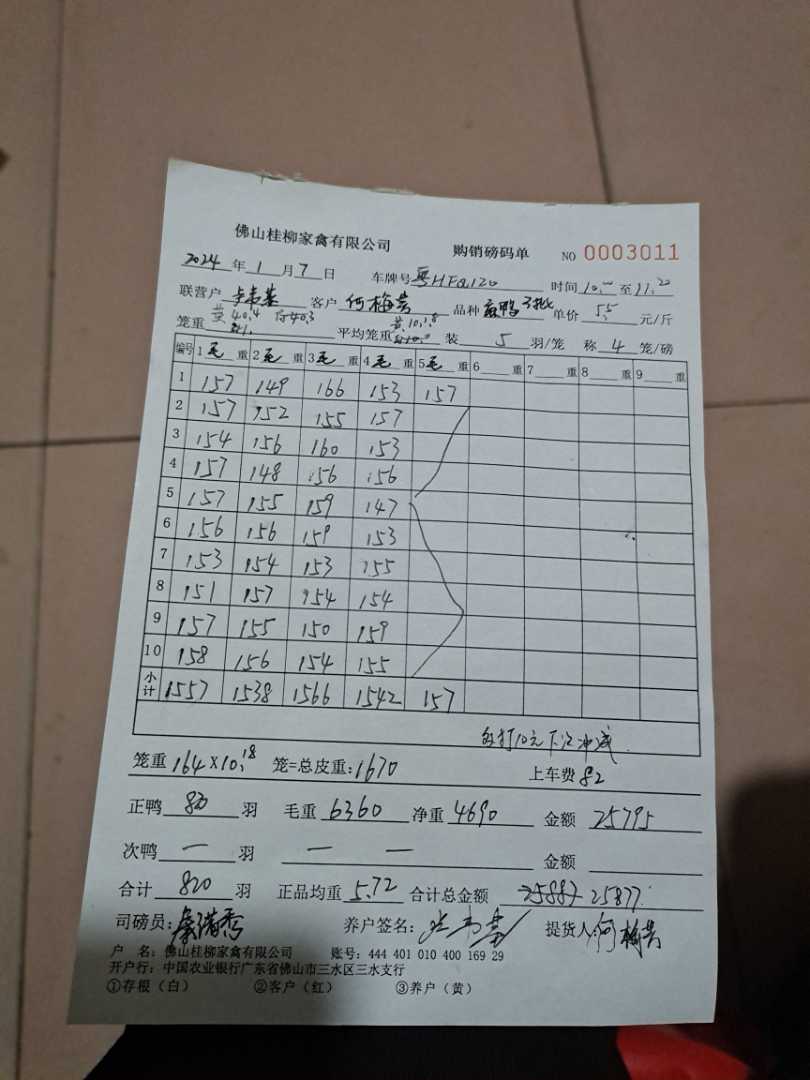 佛山桂柳家禽有限公司 购销磅码单 NO 0003011
2024 年 1 月 7 日 车牌号 粤HFQ120 时间 10.00 至 11.20
联营户 客户 何梅芸 品种 麻鸭 单价 5.5 元/斤
笼重 黄40.4 40.3 平均笼重 黄10.18 装 5 羽/笼 称 4 笼/磅
编号 1 毛 重 2 毛 重 3 毛 重 4 毛 重 5 毛 重 6 重 7 重 8 重 9 重
1 157 149 166 153 157
2 157 152 155 157
3 154 156 160 153
4 157 148 156 156
5 157 155 159 147
6 156 156 159 153
7 153 154 153 155
8 151 157 154 154
9 157 155 150 159
10 158 156 154 155
小计 1557 1538 1566 1542 157
10元下 冲减
笼重 164×10.18 笼=总皮重:1670 上车费 82
正鸭 820 羽 毛重 6360 净重 4690 金额 25795
次鸭 一 羽 一 一 金额
合计 820 羽 正品均重 5.72 合计总金额 25887 25877
司磅员: 养户签名: 提货人: 何梅芸
户 名: 佛山桂柳家禽有限公司 账号: 444 401 010 400 169 29
开户行: 中国农业银行广东省佛山市三水区三水支行
①存根(白) ②客户(红) ③养户(黄)